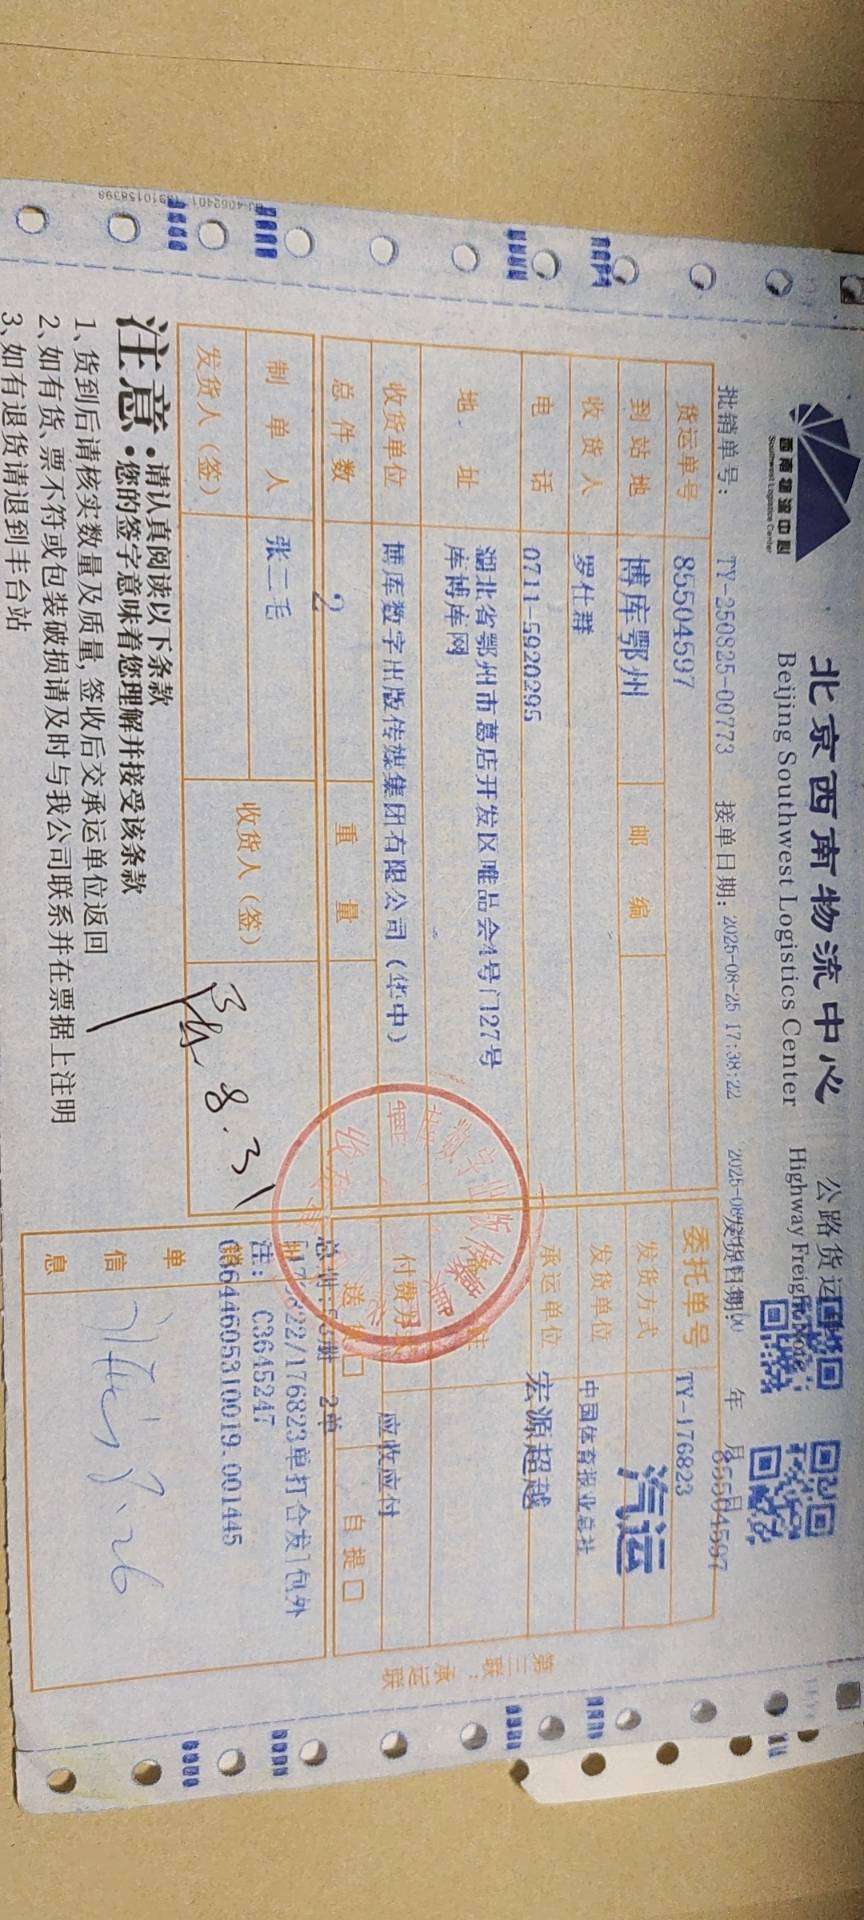 西南物流中心
Southwest Logistics Center
北京西南物流中心
Beijing Southwest Logistics Center
公路货运
Highway Freight Note
批销单号: TY-250825-00773 接单日期: 2025-08-25 17:38:22 发货日期: 年 月 日
85504597
货运单号 85504597 委托单号 TY-176823
到站地 博库鄂州 邮编 发货方式 汽运
收货人 罗仕群 发货单位 中国体育报业总社
电话 0711-5920295 承运单位 宏源超越
地址 湖北省鄂州市葛店开发区唯品会4号门27号
库博库网
收货单位 博库数字出版传媒集团有限公司(华中) 付费方式 应收应付
总件数 2 重量 送货 自提
2单
制单人 张二毛 收货人(签) 8.31
发货人(签)
单
信
息
176823单打合发]包外
注: C3645247
001445
8.26
注意:
·请认真阅读以下条款
·您的签字意味着您理解并接受该条款
1、货到后请核实数量及质量,签收后交承运单位返回
2、如有货、票不符或包装破损请及时与我公司联系并在票据上注明
3、如有退货请退到丰台站
第三联:承运联